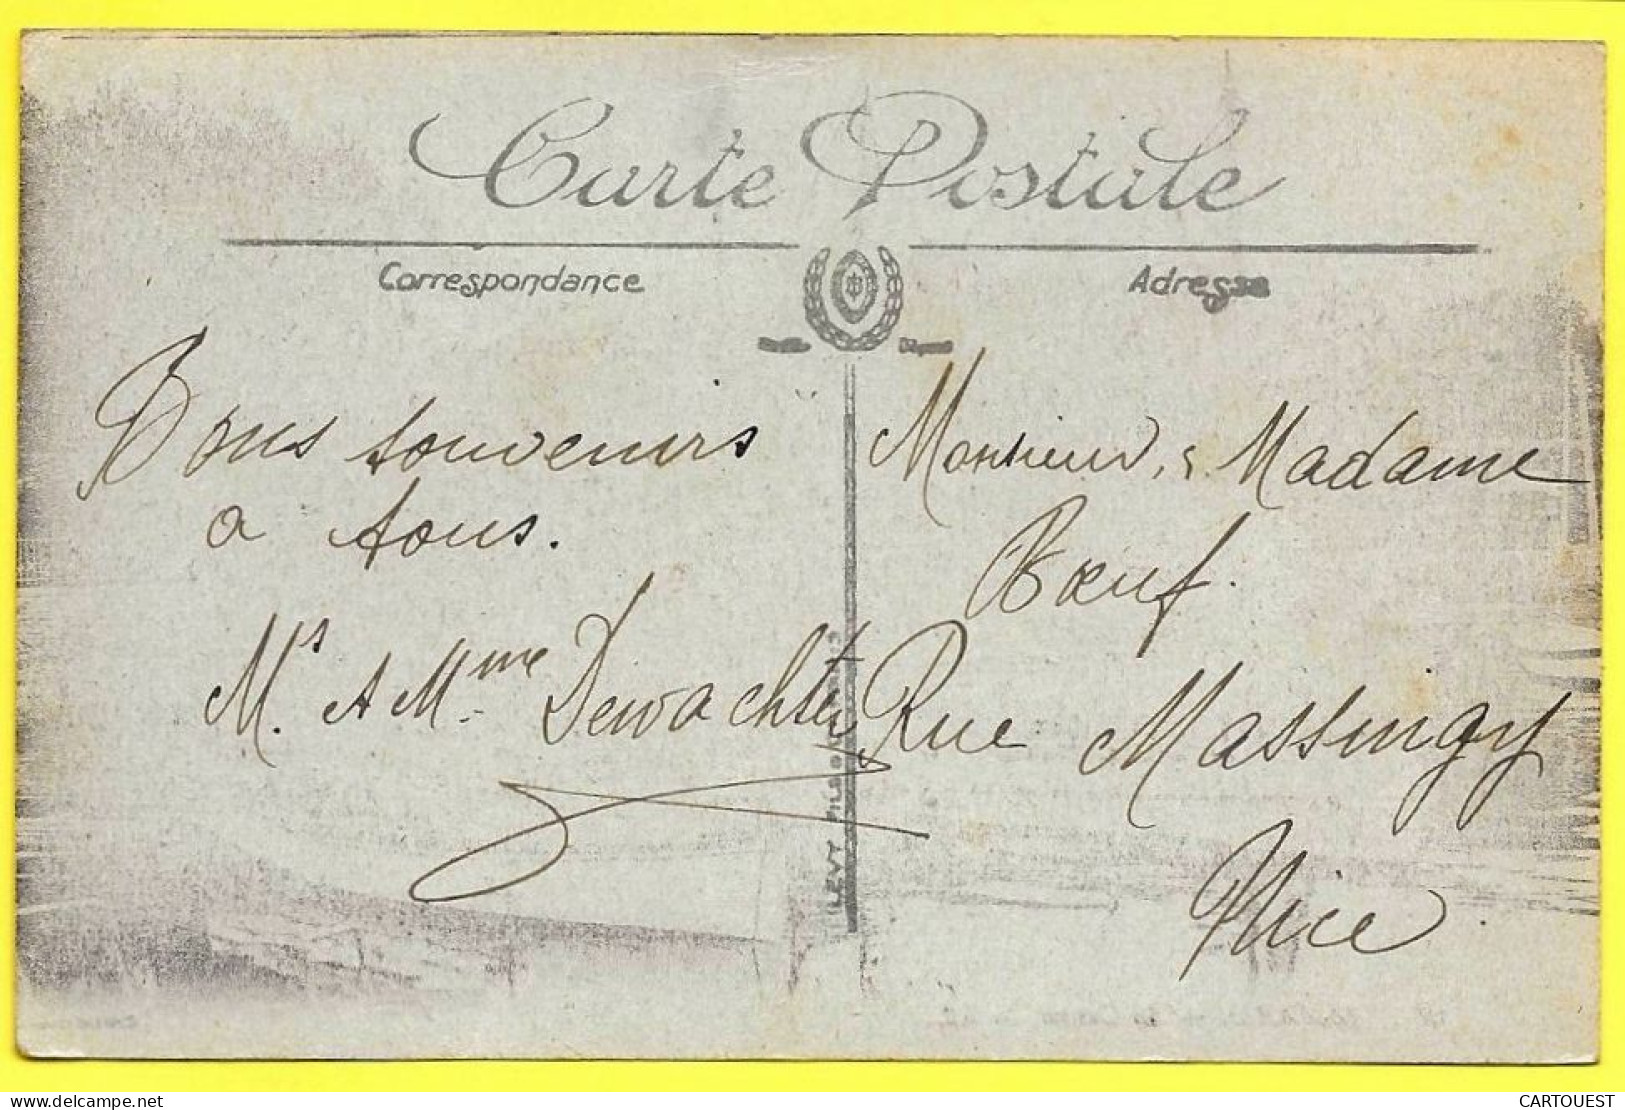 Carte Postale
Correspondance
Adresse
Bons souvenirs
a tous.
Mrs et Mme Dewachter
Monsieur, & Madame
Bœuf.
Rue Massingy
Nice.
LEVY FILS
CARTOUEST
delcampe.net